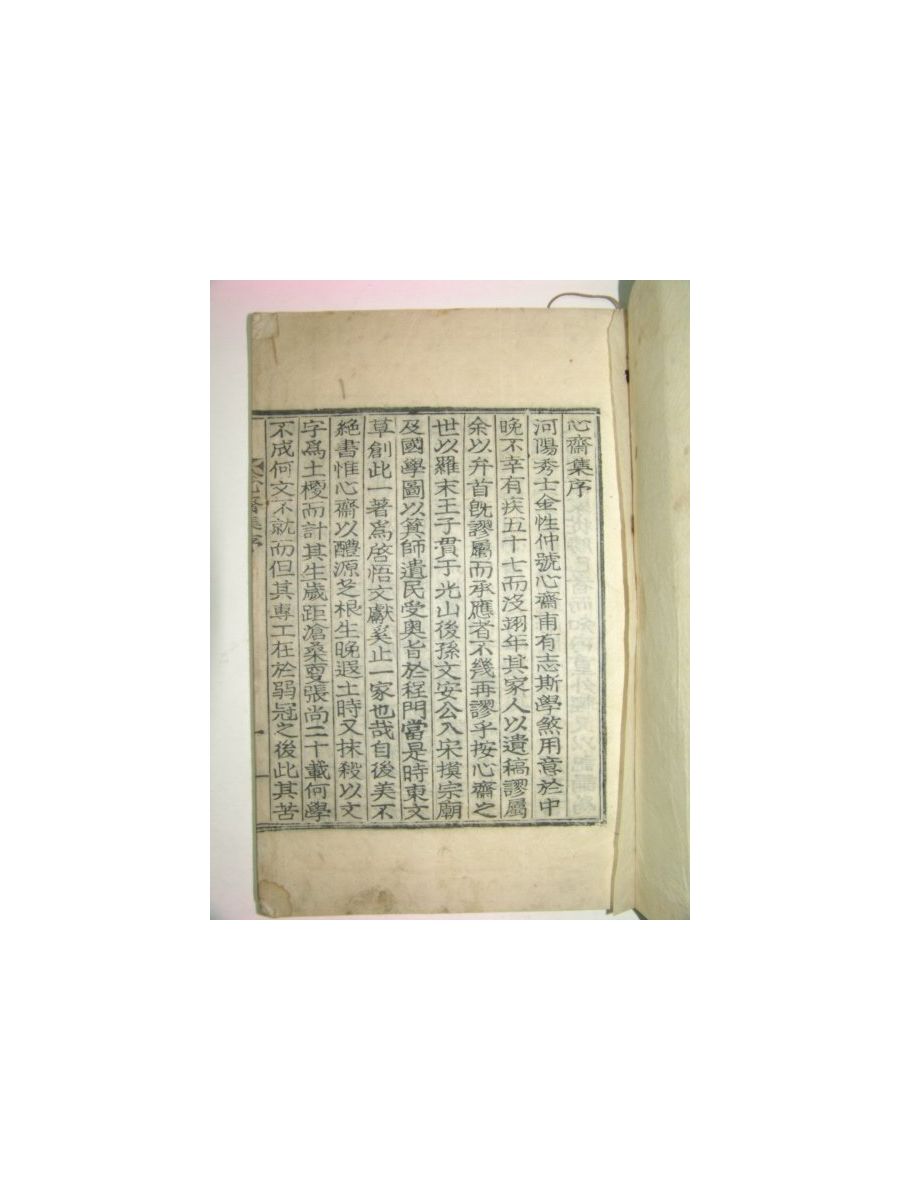 心齋集序
河陽秀士金性仲號心齋甫有志斯學煞用意於中
晚不幸有疾五十七而沒翊年其家人以遺稿謬屬
余以弁首旣謬屬而承應者不幾再謬乎按心齋之
世以羅末王子貫于光山後孫文安公入宋摸宗廟
及國學圖以箕師遺民受奧旨於程門當是時東文
草創此一著爲啓悟文獻奚止一家也哉自後美不
絶書惟心齋以醴源芝根生晩遐土時又抹殺以文
字爲土櫌而計其生歲距滄桑夏張尚二十載何學
不成何文不就而但其專工在於弱冠之後此其苦
心齋集序
一